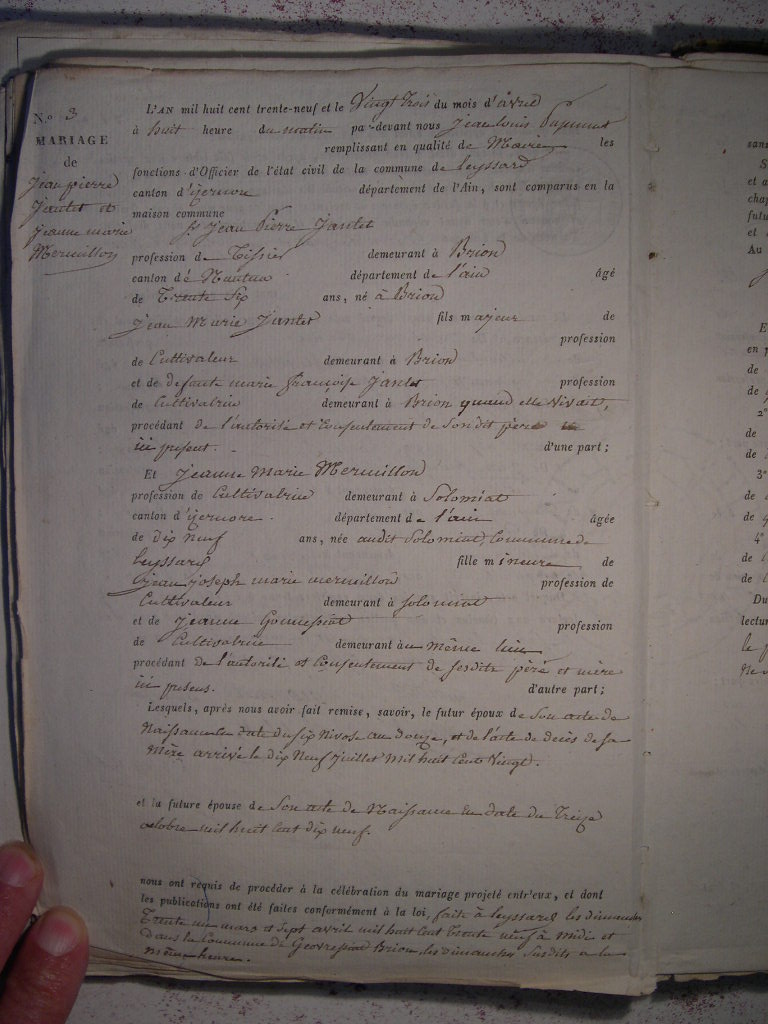 N.º 3
MARIAGE
de
Jean pierre
Jantet et
jeanne marie
Mermillon
L'AN mil huit cent trente-neuf et le Vingt trois du mois d'avril
à huit heure du matin par-devant nous Jean Louis
remplissant en qualité de Maire les
fonctions d'Officier de l'état civil de la commune de Leyssard
canton d'yzernore département de l'Ain, sont comparus en la
maison commune
Sr Jean Pierre Jantet
profession de Tissier demeurant à Brion
canton de Nantua département de l'ain âgé
de Trente Six ans, né à Brion
fils majeur de
Jean Marie Jantet
profession
de Cultivateur demeurant à Brion
et de defunte marie françoise Jantet profession
de Cultivatrice demeurant à Brion quand elle vivait,
procédant de l'autorité et Consentement de Son dit père
ici présent. d'une part;
Et Jeanne Marie Mermillon
profession de Cultivatrice demeurant à Solomiat
canton d'yzernore département de l'ain âgée
de dix neuf ans, née audit Solomiat Commune de
Leyssard fille mineure de
jean joseph marie mermillon profession de
Cultivateur demeurant à Solomiat
et de Jeanne Gonnessiat profession
de Cultivatrice demeurant au même lieu
procédant de l'autorité et Consentement de ses dits père et mère
ici présens. d'autre part;
Lesquels, après nous avoir fait remise, savoir, le futur époux de Son acte de
Naissance en date du six Nivose an douze, et de l'acte de décès de sa
Mère arrivé le dix Neuf Juillet Mil huit Cent Vingt.
et la future épouse de Son acte de Naissance en date du Treize
octobre mil huit Cent dix neuf.
nous ont requis de procéder à la célébration du mariage projeté entr'eux, et dont
les publications ont été faites conformément à la loi, faite à Leyssard les dimanches
Trente un mars et Sept avril mil huit Cent Trente neuf à Midi et
Dans la Commune de Geovressiat Brion, les dimanches Susdits a la
même heure.